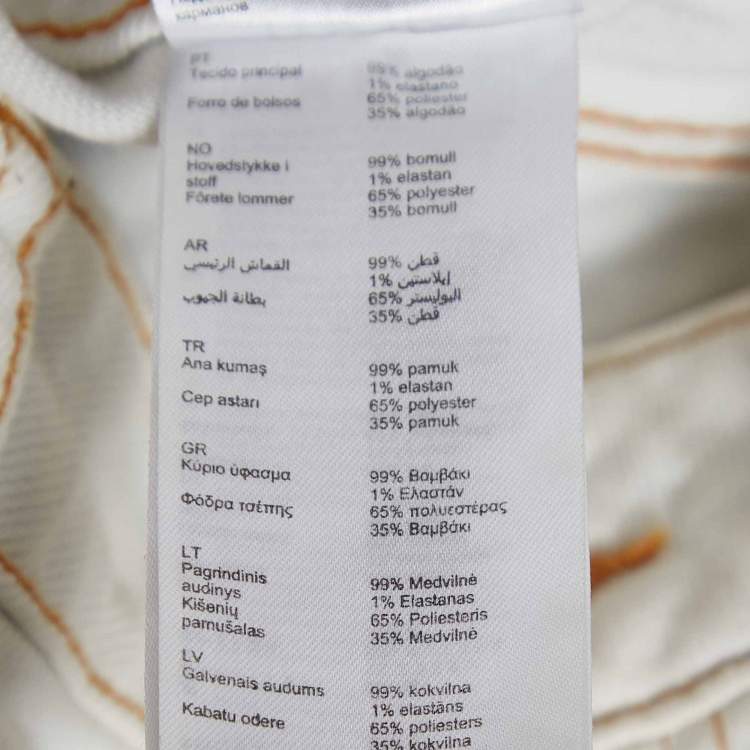 карманов
PT
Tecido principal 99% algodão
1% elastano
Forro de bolsos 65% poliester
35% algodão
NO
Hovedstykke i 99% bomull
stoff 1% elastan
Fôrete lommer 65% polyester
35% bomull
AR
القماش الرئيسي 99% قطن
1% إيلاستين
بطانة الجيوب 65% البوليستر
35% قطن
TR
Ana kumaş 99% pamuk
1% elastan
Cep astarı 65% polyester
35% pamuk
GR
Κύριο ύφασμα 99% Βαμβάκι
1% Ελαστάν
Φόδρα τσέπης 65% πολυεστέρας
35% Βαμβάκι
LT
Pagrindinis 99% Medvilnė
audinys 1% Elastanas
Kišenių 65% Poliesteris
pamušalas 35% Medvilnė
LV
Galvenais audums 99% kokvilna
1% elastāns
Kabatu odere 65% poliesters
35% kokvilna